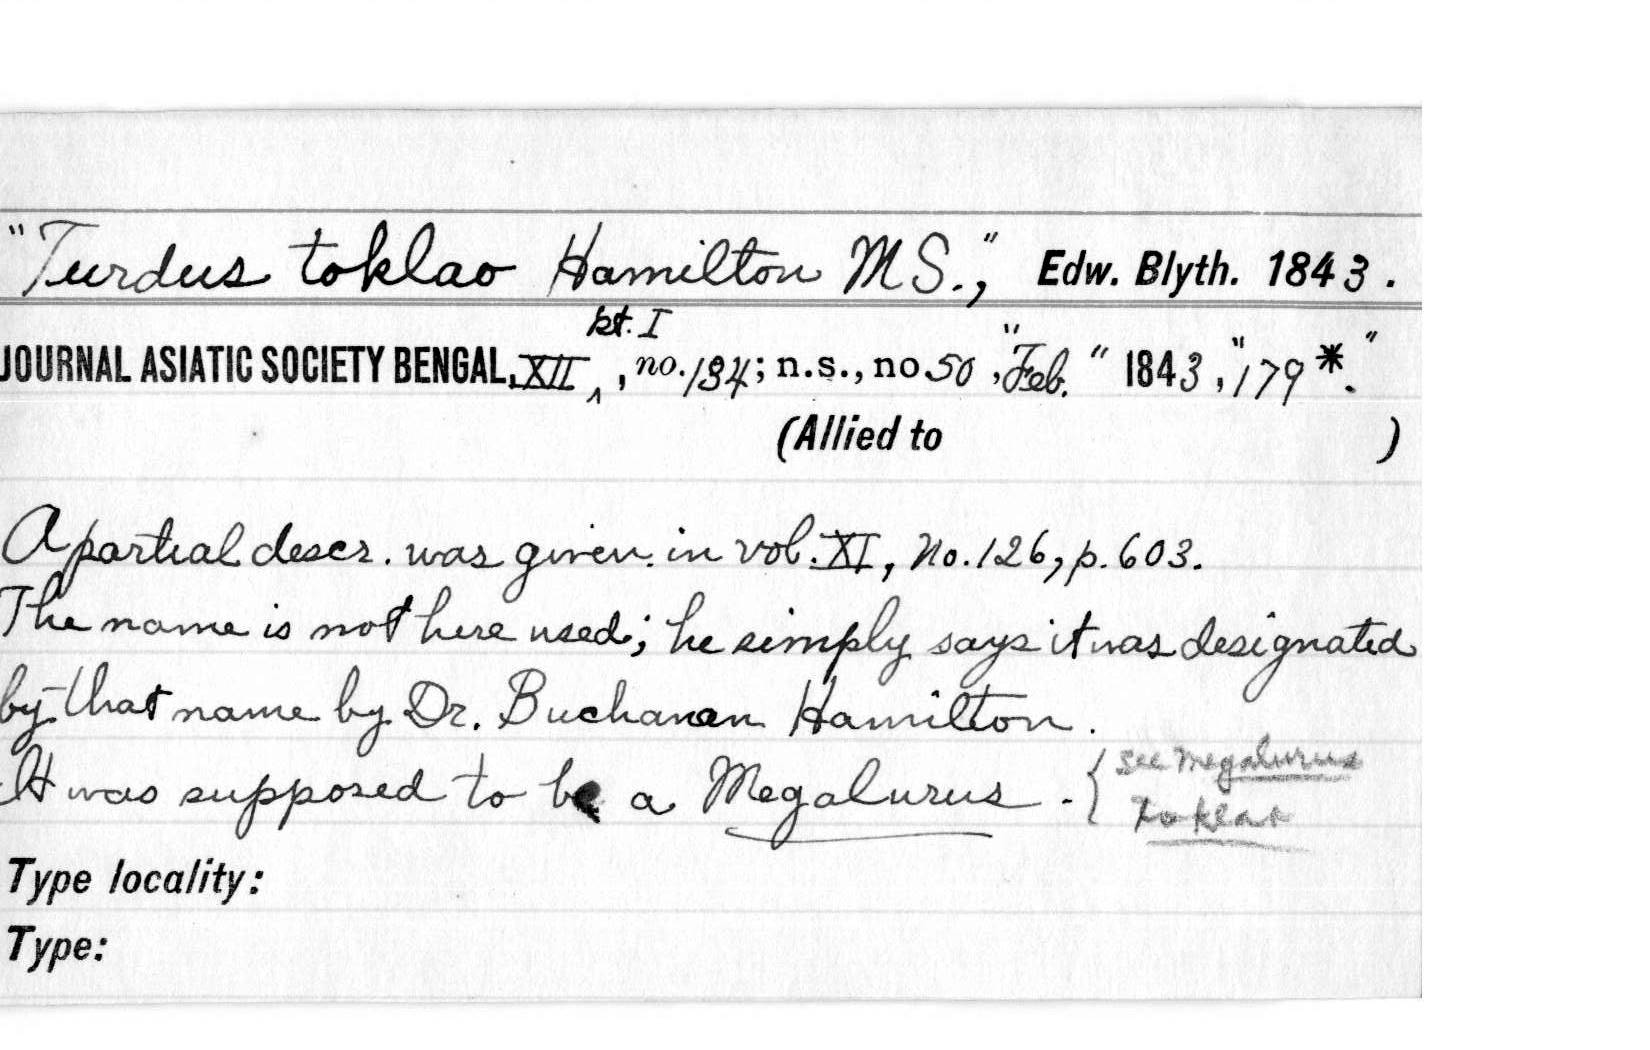 "Turdus toklao Hamilton MS.," Edw. Blyth. 1843.
pt. I
JOURNAL ASIATIC SOCIETY BENGAL, XII ‸, no. 134; n.s., no 50, "Feb." 1843, "179*."
(Allied to )
A partial descr. was given in vol. XI, No. 126, p. 603.
The name is not here used; he simply says it was designated
by that name by Dr. Buchanan Hamilton.
It was supposed to be a Megalurus. - { see Megalurus
toklao
Type locality:
Type: